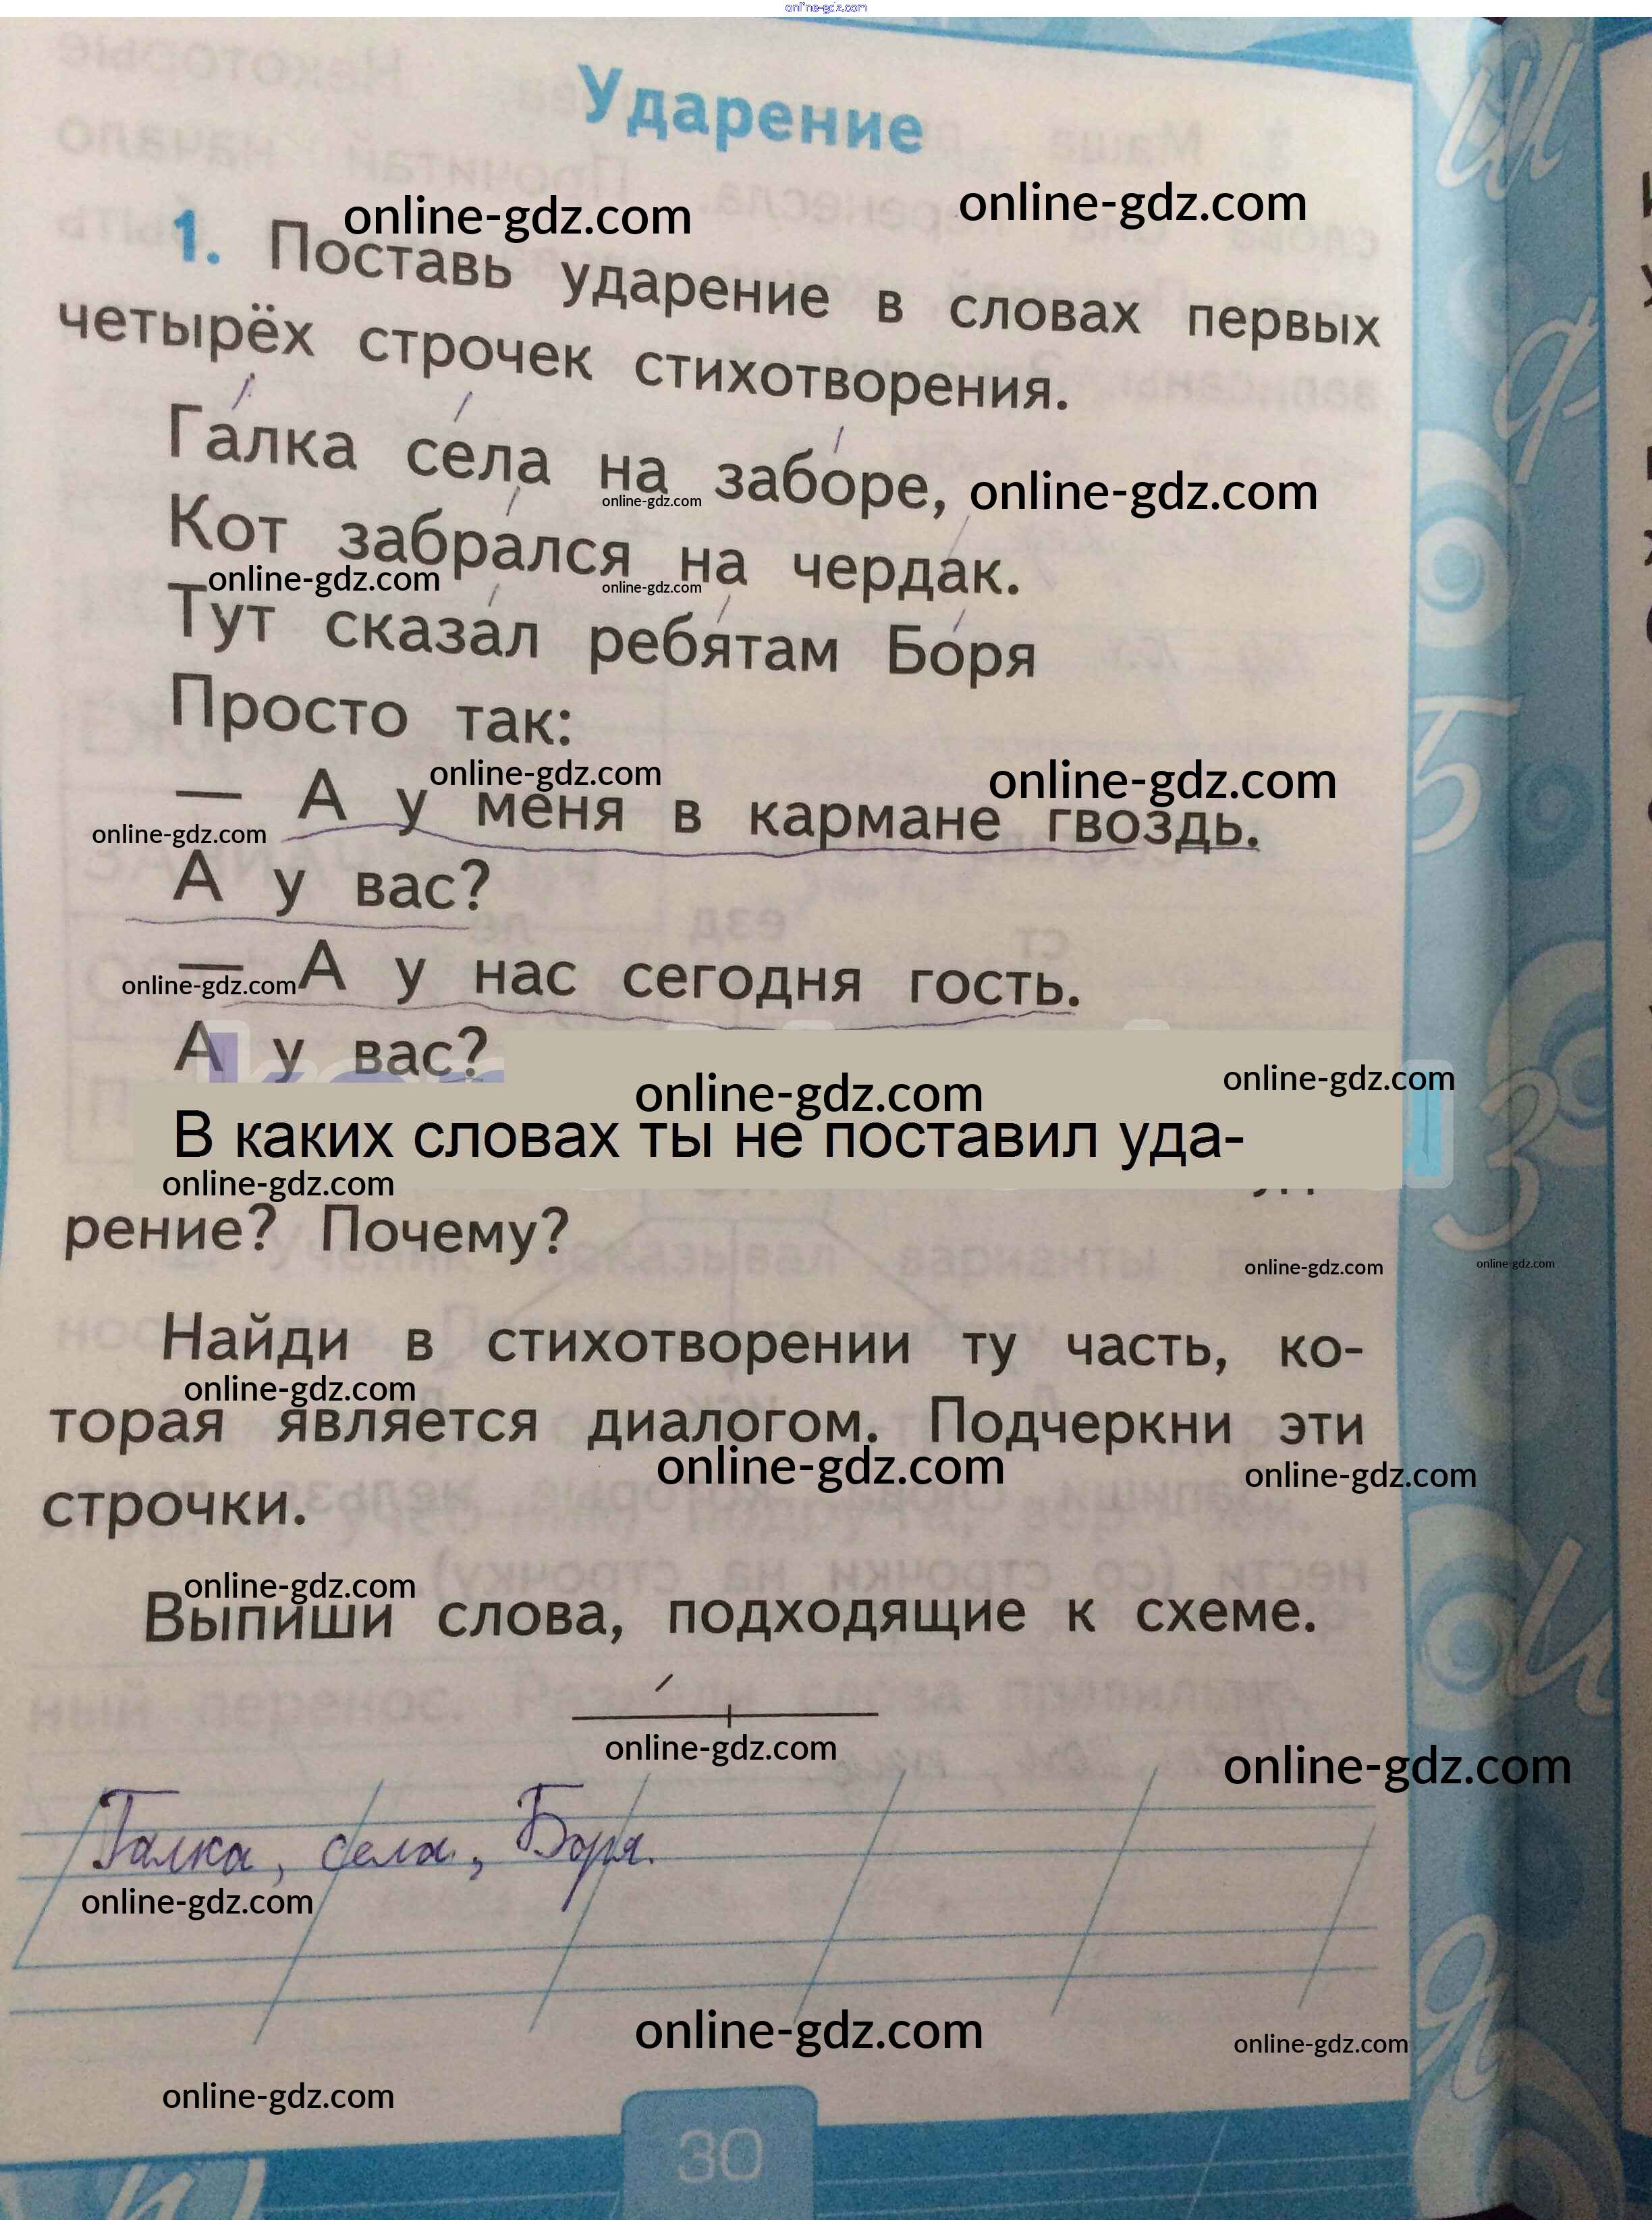 online-gdz.com
Ударение
online-gdz.com online-gdz.com
1. Поставь ударение в словах первых
четырёх строчек стихотворения.
Галка села на заборе, online-gdz.com
online-gdz.com
Кот забрался на чердак.
online-gdz.com online-gdz.com
Тут сказал ребятам Боря
Просто так:
online-gdz.com online-gdz.com
— А у меня в кармане гвоздь.
online-gdz.com
А у вас?
— А у нас сегодня гость.
online-gdz.com
А у вас?
online-gdz.com online-gdz.com
В каких словах ты не поставил уда-
online-gdz.com
рение? Почему?
online-gdz.com online-gdz.com
Найди в стихотворении ту часть, ко-
online-gdz.com
торая является диалогом. Подчеркни эти
online-gdz.com online-gdz.com
строчки.
online-gdz.com
Выпиши слова, подходящие к схеме.
online-gdz.com
online-gdz.com
Галка, села, Боря.
online-gdz.com
online-gdz.com
online-gdz.com
online-gdz.com
30